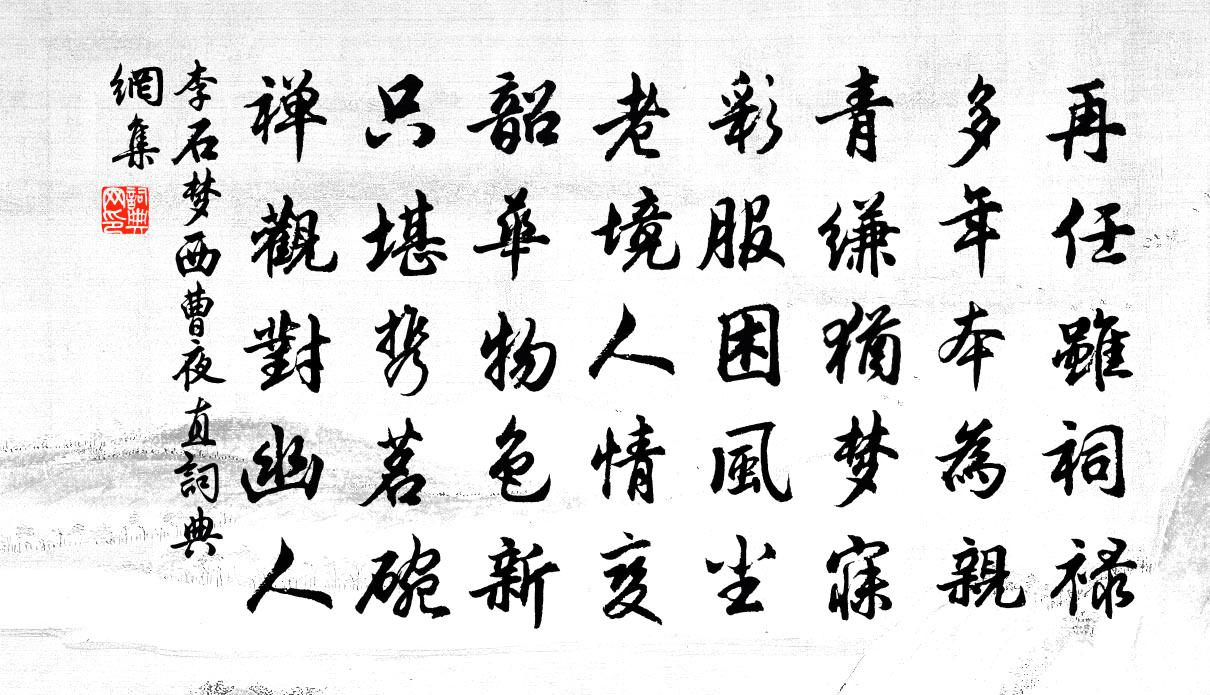 再任雖祠禄
多年本為親
青縑猶梦寐
彩服困風尘
老境人情变
韶華物色新
只堪携茗碗
禅觀對幽人
李石梦西曹夜直詞典
網集
詞典
网印